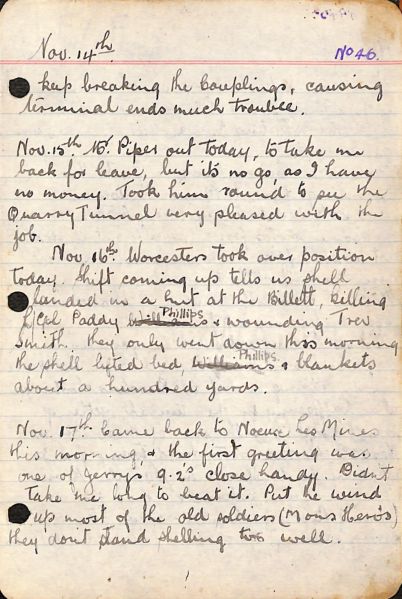 Nov. 14th.
No 46.
keep breaking the Couplings, causing
terminal ends much trouble.
Nov. 15th Mr. Piper out today, to take me
back for leave, but it's no go, as I have
no money. Took him round to see the
Quarry Tunnel very pleased with the
job.
Nov. 16th. Worcesters took over position
today. Shift coming up tells us shell
landed in a hut at the Billett, killing
L/Cpl Paddy Williams Phillips & wounding Trev
Smith. they only went down this morning
the shell lifted bed Williams Phillips & blankets
about a hundred yards.
Nov. 17th Came back to Noeux Les Mines
this morning, & the first greeting was
one of Jerry's 9.2's close handy. Didn't
take me long to beat it. Put the wind
up most of the old soldiers (Mons Hero's)
they don't stand shelling too well.